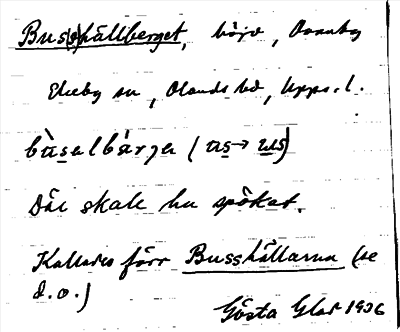 Bus(s)hällberget, höjd, Danneby
Ekeby sn, Olands hd, Upps. l.
bùsalbàrja (us→us)
Där skale ha spökat.
Kallades förr Busshällarna (se
d.o.)
Gösta Glad 1936